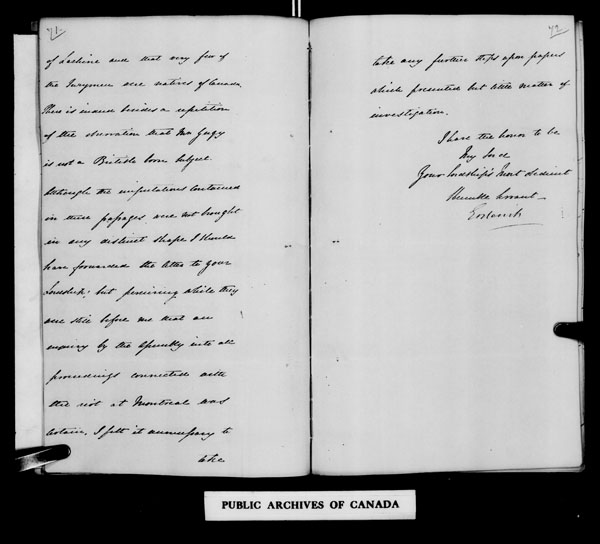 71.
of Lachine and that very few of
the Jurymen were natives of Canada.
There is indeed besides a repetition
of the observation that Mr Gugy
is not a British born subject.
Although the imputations contained
in these passages were not brought
in any distinct shape I should
have forwarded the letter to Your
Lordship; but perceiving while they
were still before me that an
enquiry by the Assembly into all
proceedings connected with
the riot at Montreal was
certain, I felt it unnecessary to
take
72
take any further steps upon papers
which presented but little matter of
investigation.
I have the honor to be
My Lord
Your Lordship's Most Obedient
Humble Servant
PUBLIC ARCHIVES OF CANADA